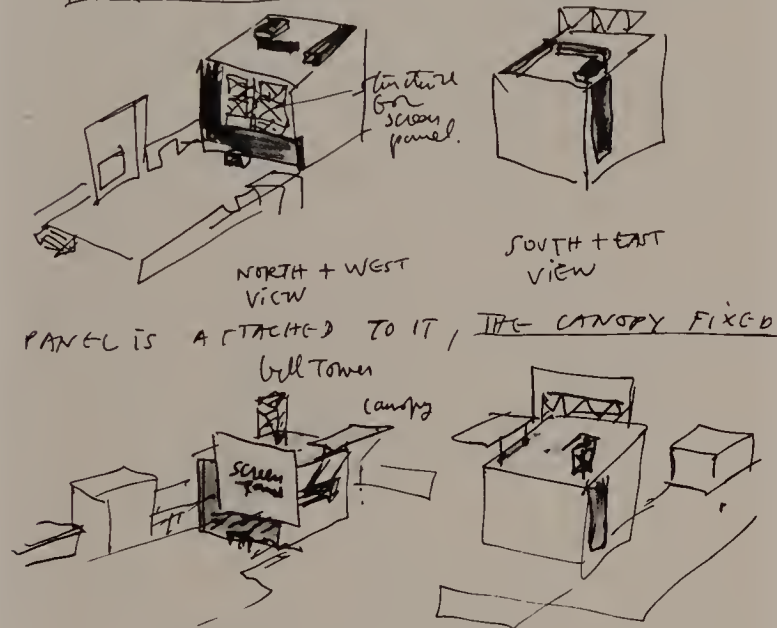 structure
for
screen
panel.
NORTH + WEST
VIEW
SOUTH + EAST
VIEW
PANEL IS ATTACHED TO IT, THE CANOPY FIXED
bell Tower
canopy
screen
panel